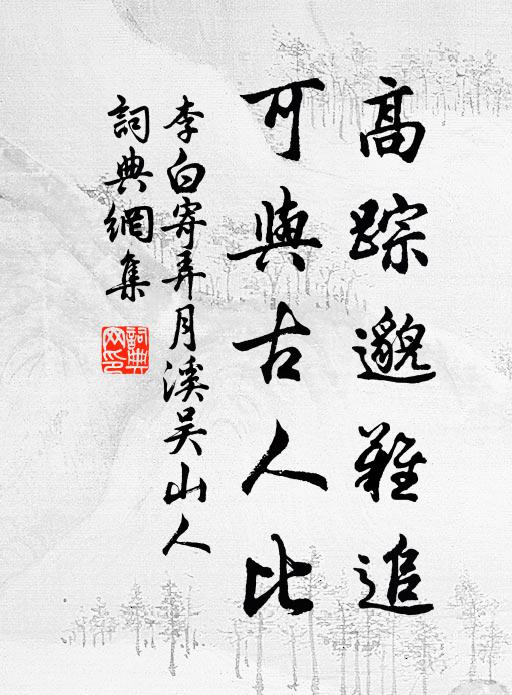 高踪邈難追
可與古人比
李白寄弄月溪吴山人
詞典網集
詞典
网印